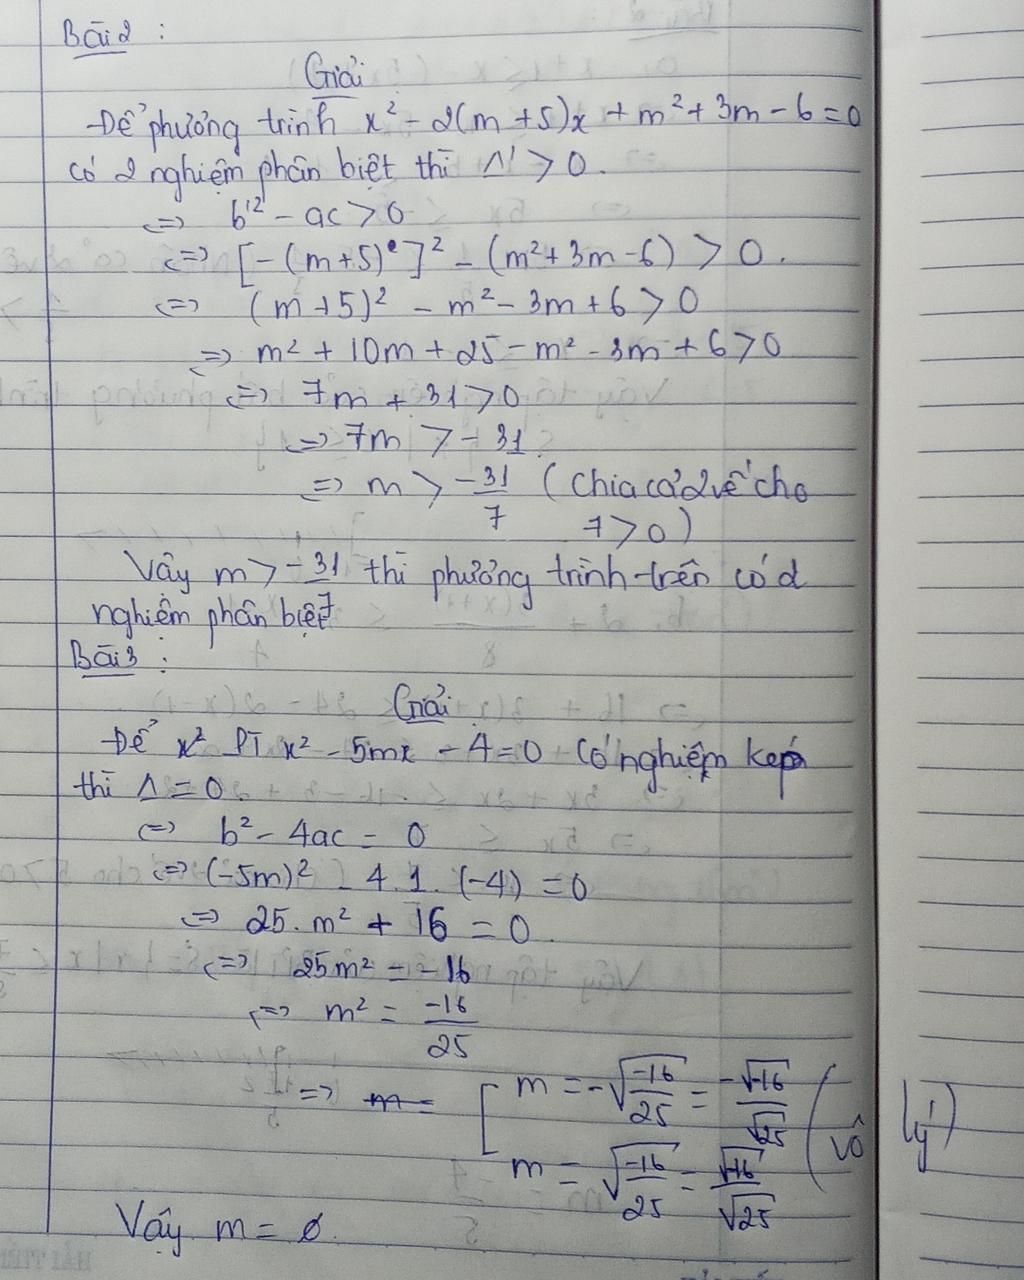 Bài 2 :
Giải
Để phương trình x² - 2(m + 5)x + m² + 3m - 6 = 0
có 2 nghiệm phân biệt thì Δ' > 0.
<=> b'² - ac > 0
<=> [-(m+5)]² - (m² + 3m - 6) > 0.
<=> (m + 5)² - m² - 3m + 6 > 0
<=> m² + 10m + 25 - m² - 3m + 6 > 0
<=> 7m + 31 > 0
<=> 7m > -31
<=> m > -31/7 (Chia cả 2 vế cho
7 > 0)
Vậy m > -31/7 thì phương trình trên có 2
nghiệm phân biệt
Bài 3 :
Giải
Để x² PT x² - 5mx - 4 = 0 có nghiệm kép
thì Δ = 0
<=> b² - 4ac = 0
<=> (-5m)² - 4.1.(-4) = 0
<=> 25.m² + 16 = 0
<=> 25m² = -16
<=> m² = -16/25
<=> m = [ m = -√(-16/25) = -√-16/√25 (vô lý)
m = √(-16/25) = √-16/√25
Vậy m = ø.